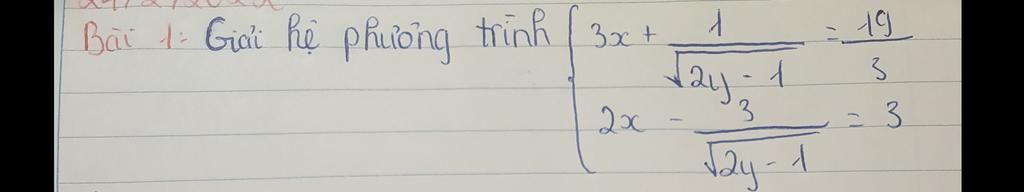 Bài 1: Giải hệ phương trình { 3x + 1/√(2y - 1) = 19/3
2x - 3/√(2y - 1) = 3